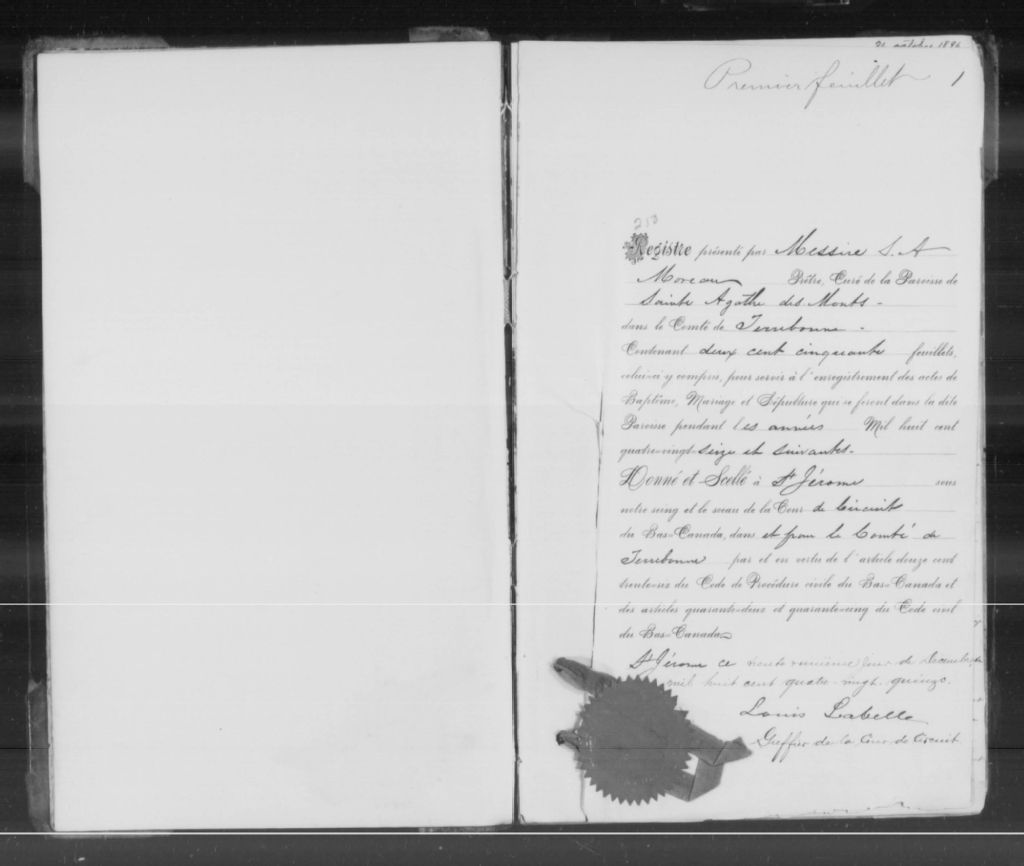 21 octobre 1896
Premier feuillet 1
210
Registre présenté par Messire S. A
Moreau Prêtre, Curé de la Paroisse de
Sainte Agathe des Monts -
dans le Comté de Terrebonne -
Contenant deux cent cinquante feuillets,
celui-ci y compris, pour servir à l'enregistrement des actes de
Baptême, Mariage et Sépulture qui se feront dans la dite
Paroisse pendant les années Mil huit cent
quatre-vingt-seize et suivantes.
Donné et Scellé à St Jérome sous
notre seing et le sceau de la Cour de Circuit
du Bas-Canada, dans et pour le Comté de
Terrebonne par et en vertu de l'article douze cent
trente-six du Code de Procédure civile du Bas-Canada et
des articles quarante-deux et quarante-cinq du Code civil
du Bas-Canada
St Jérome ce jour de Décembre
mil huit cent quatre-vingt-quinze.
Louis Labelle
Greffier de la Cour de Circuit